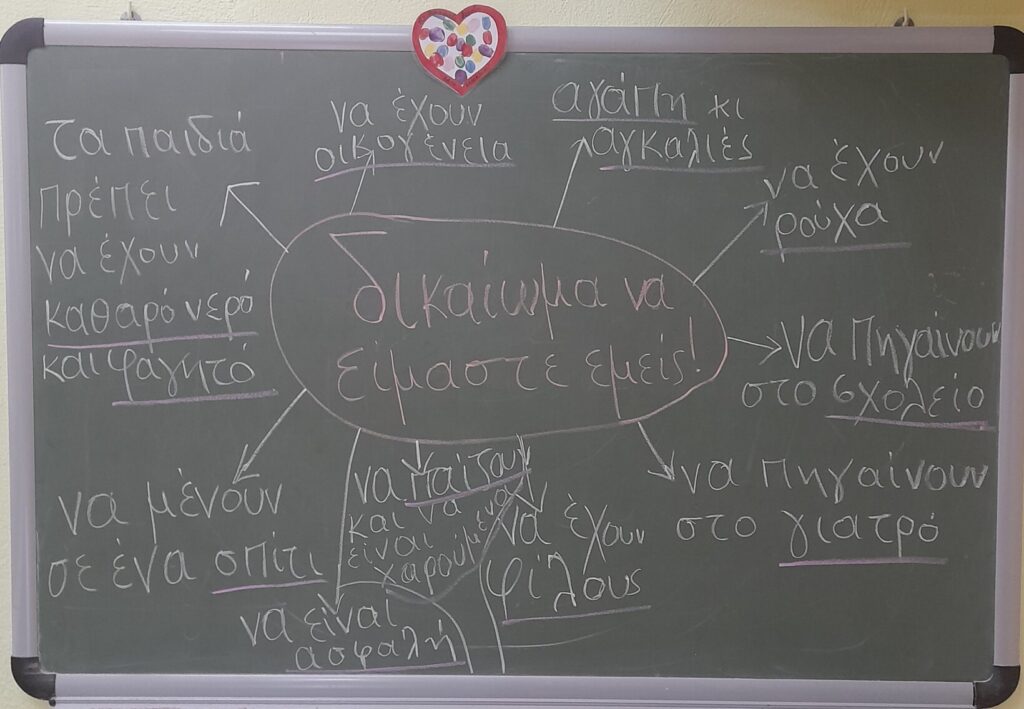 δικαίωμα να
είμαστε εμείς!
Τα παιδιά
πρέπει
να έχουν
καθαρό νερό
και φαγητό
να έχουν
οικογένεια
αγάπη κι
αγκαλιές
να έχουν
ρούχα
να πηγαίνουν
στο σχολείο
να πηγαίνουν
στο γιατρό
να έχουν
φίλους
να παίζουν
και να
είναι
χαρούμενα
να είναι
ασφαλή
να μένουν
σε ένα σπίτι